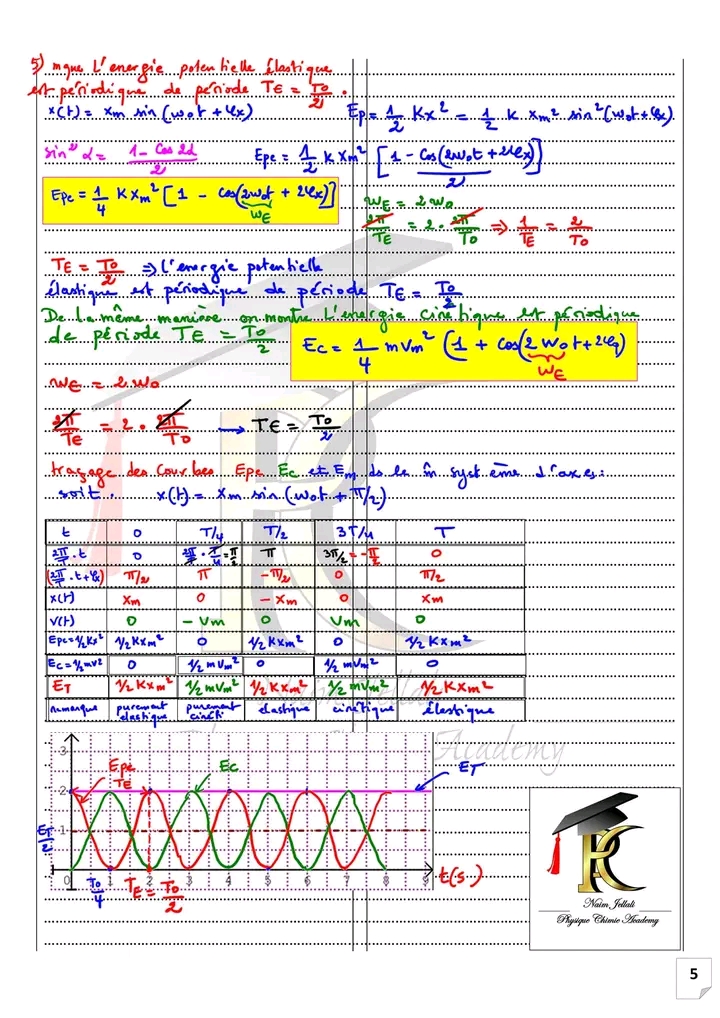 5) mque l'energie potentielle élastique
est périodique de période TE = T0/2 .
x(t) = xm sin(w0t + φx)
Ep = 1/2 Kx² = 1/2 K xm² sin²(w0t + φx)
sin² α = (1 - Cos 2α)/2
Epe = 1/2 K Xm² [1 - Cos(2w0t + 2φx)/2]
Epe = 1/4 K Xm² [1 - cos(2w0t + 2φx)]
WE
WE = 2 w0
2π/TE = 2 . 2π/T0 => 1/TE = 2/T0
TE = T0/2 => l'energie potentielle
élastique est périodique de période TE = T0/2
De la même manière on montre l'énergie cinétique est périodique
de période TE = T0/2
Ec = 1/4 m Vm² (1 + cos(2 w0t + 2φx)
WE
WE = 2 w0
2π/TE = 2 . 2π/T0 → TE = T0/2
traçage des Courbes Epe Ec et Em ds le m̂ système d'axes:
soit . x(t) = xm sin(w0t + π/2)
t 0 T/4 T/2 3T/4 T
2π/T . t 0 2π/T . T/4 = π/2 π 3π/2 = -π/2 0
(2π/T . t + φx) π/2 π -π/2 0 π/2
x(t) xm 0 - xm 0 xm
V(t) 0 - Vm 0 Vm 0
Epe=1/2Kx² 1/2 K xm² 0 1/2 K xm² 0 1/2 K xm²
Ec=1/2mv² 0 1/2 m Vm² 0 1/2 m Vm² 0
ET 1/2 K xm² 1/2 m Vm² 1/2 K xm² 1/2 m Vm² 1/2 K xm²
remarque purement elastique purement cinéti elastique cinétique élastique
Academy
3 Epe TE Ec ET
2
ET/2 1
0 1 2 3 4 5 6 7 8 9 t(s)
T0/4 TE = T0/2
Naim Jellali
Physique Chimie Academy
5